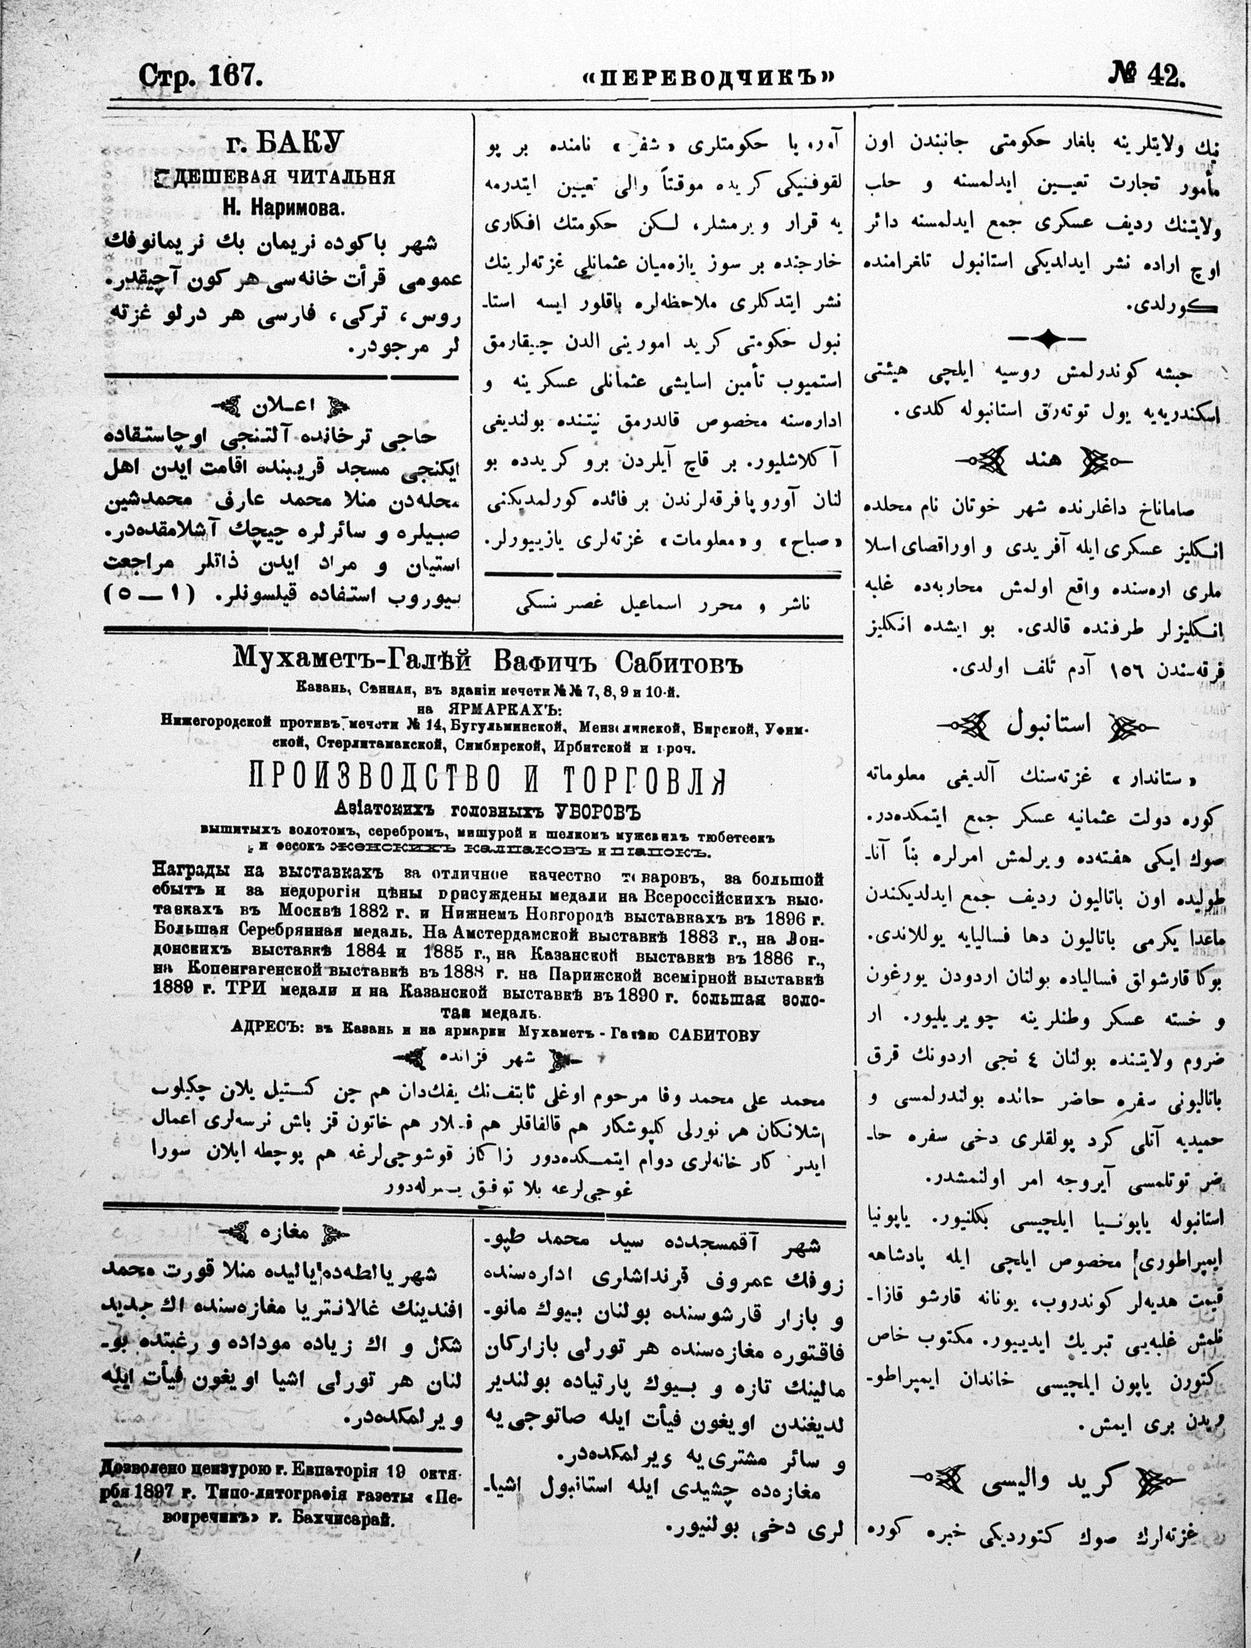 Стр. 167.
«ПЕРЕВОДЧИКЪ»
№ 42.
نك ولايتلرينه بلغار حكومتى جانبندن اون
مأمور تجارت تعيين ايدلمسنه و حلب
ولايتنك رديف عسكرى جمع ايدلمسنه دائر
اوچ اراده نشر ايدلديكى استانبول تلغرامنده
كورلدى.
حبشه كوندرلمش روسيه ايلچى هيئتى
اسكندريه‌يه يول توته‌رق استانبوله كلدى.
هند
صاماناخ داغلرنده شهر خوتان نام محلده
انكليز عسكرى ايله آفريدى و اوراقصاى اسلا
ملرى اره‌سنده واقع اولمش محاربه‌ده غلبه
انكليزلر طرفنده قالدى. بو ايشده انكليز
فرقه‌سندن ١٥٦ آدم تلف اولدى.
استانبول
«ستاندار» غزته‌سنك آلديغى معلوماته
كوره دولت عثمانيه عسكر جمع ايتمكده‌در.
صوك ايكى هفته‌ده ويرلمش امرلره بنأ آنا-
طوليده اون باتاليون رديف جمع ايدلديكندن
ماعدا يكرمى باتاليون دها فساليايه يوللاندى.
بوكا قارشواق فسالياده بولنان اردودن يورغون
و خسته عسكر وطنلرينه چويريليور. ار
ضروم ولايتنده بولنان ٤ نجى اردونك قرق
باتاليونى سفره حاضر حالده بولندرلمسى و
حميديه آتلى كرد پولقلرى دخى سفره حا-
ضر توتلمسى آيروجه امر اولنمشدر.
استانبوله ياپونيا ايلچيسى بكلنيور. ياپونيا
ايمپراطورى مخصوص ايلچى ايله پادشاهه
قيمت هديه‌لر كوندروب، يونانه قارشو قازا-
نلمش غلبه‌يى تبريك ايدييور. مكتوب خاص
كتورن ياپون ايلچيسى خاندان ايمپراطو-
ريدن برى ايمش.
كريد واليسى
غزته‌لرك صوك كتورديكى خبره كوره
آوروپا حكومتلرى «شفر» نامنده بر پو
لقوفنيكى كريده موقتاً والى تعيين ايتدرمه
يه قرار ويرمشلر، لكن حكومتك افكارى
خارجنده بر سوز يازه‌ميان عثمانلى غزته‌لرينك
نشر ايتدكلرى ملاحظه‌لره باقلور ايسه استا-
نبول حكومتى كريد امورينى الدن چيقارمق
استميوب تأمين اسايشى عثمانلى عسكرينه و
اداره‌سنه مخصوص قالدرمق نيتنده بولنديغى
آكلاشليور. بر قاچ آيلردن برو كريدده بو
لنان آوروپا فرقه‌لرندن بر فائده كورلمديكنى
«صباح» و «معلومات» غزته‌لرى يازييورلر.
ناشر و محرر اسماعيل غصبرنسكى
г. БАКУ
ДЕШЕВАЯ ЧИТАЛЬНЯ
Н. Наримова.
شهر باكوده نريمان بك نريمانوفك
عمومى قرأت خانه‌سى هر كون آچيقدر.
روس، تركى، فارسى هر درلو غزته
لر مرجودر.
اعلان
حاجى ترخانده آلتنجى اوچاستقاده
ايكنجى مسجد قريبنده اقامت ايدن اهل
محله‌دن منلا محمد عارف محمدشين
صبيلره و سائرلره چيچك آشلامقده‌در.
استيان و مراد ايدن ذاتلر مراجعت
بيوروب استفاده قيلسونلر. (١—٥)
Мухаметъ-Галѣй Вафичъ Сабитовъ
Казань, Сѣнная, въ зданіи мечети №№ 7, 8, 9 и 10-й.
на ЯРМАРКАХЪ:
Нижегородской противъ мечети № 14, Бугульминской, Мензелинской, Бирской, Уфим-
ской, Стерлитамакской, Симбирской, Ирбитской и проч.
ПРОИЗВОДСТВО И ТОРГОВЛЯ
Азіатскихъ головныхъ УБОРОВЪ
вышитыхъ золотомъ, серебромъ, мишурой и шелкомъ мужскихъ тюбетеекъ
и фесокъ женскихъ калпаковъ и шапокъ.
Награды на выставкахъ за отличное качество товаровъ, за большой
сбытъ и за недорогія цѣны присуждены медали на Всероссійскихъ выс-
тавкахъ въ Москвѣ 1882 г. и Нижнемъ Новгородѣ выставкахъ въ 1896 г.
Большая Серебрянная медаль. На Амстердамской выставкѣ 1883 г., на Лон-
донскихъ выставкѣ 1884 и 1885 г., на Казанской выставкѣ въ 1886 г.,
на Копенгагенской выставкѣ въ 1888 г. на Парижской всемірной выставкѣ
1889 г. ТРИ медали и на Казанской выставкѣ въ 1890 г. большая золо-
тая медаль.
АДРЕСЪ: въ Казань и на ярмарки Мухаметъ-Галѣю САБИТОВУ
شهر قزانده
محمد على محمد وفا مرحوم اوغلى ثابتفنك يفك‌دان هم جن كنستيل يلان چكيلوب
اشلانكان هر نورلى كلپوشكار هم قالفاقلر هم فسلار هم خاتون قز باش نرسه‌لرى اعمال
ايدر كار خانه‌لرى دوام ايتمكده‌دور زاكاز قوشوچى‌لرغه هم پوچطه ايلان سورا
غوچى‌لرغه بلا توقيق يبرله‌دور
شهر آقمسجدده سيد محمد طپو-
زوفك عمروف قرنداشلرى اداره‌سنده
و بازار قارشوسنده بولنان بيوك مانو-
فاقتوره مغازه‌سنده هر تورلى بازاركان
مالينك تازه و بيوك پارتياده بولندير
لديغندن اويغون فيأت ايله صاتوجى‌يه
و سائر مشترى‌يه ويرلمكده‌در.
مغازه‌ده چشيدى ايله استانبول اشيا-
لرى دخى بولنيور.
مغازه
شهر يالطه‌ده ياليده منلا قورت محمد
افندينك غالانتريا مغازه‌سنده اك جديد
شكل و اك زياده موداده و رغبتده بو-
لنان هر تورلى اشيا اويغون فيأت ايله
ويرلمكده‌در.
Дозволено цензурою г. Евпаторія 19 октя-
бря 1897 г. Типо-литографія газеты «Пе-
водчикъ» г. Бахчисарай.